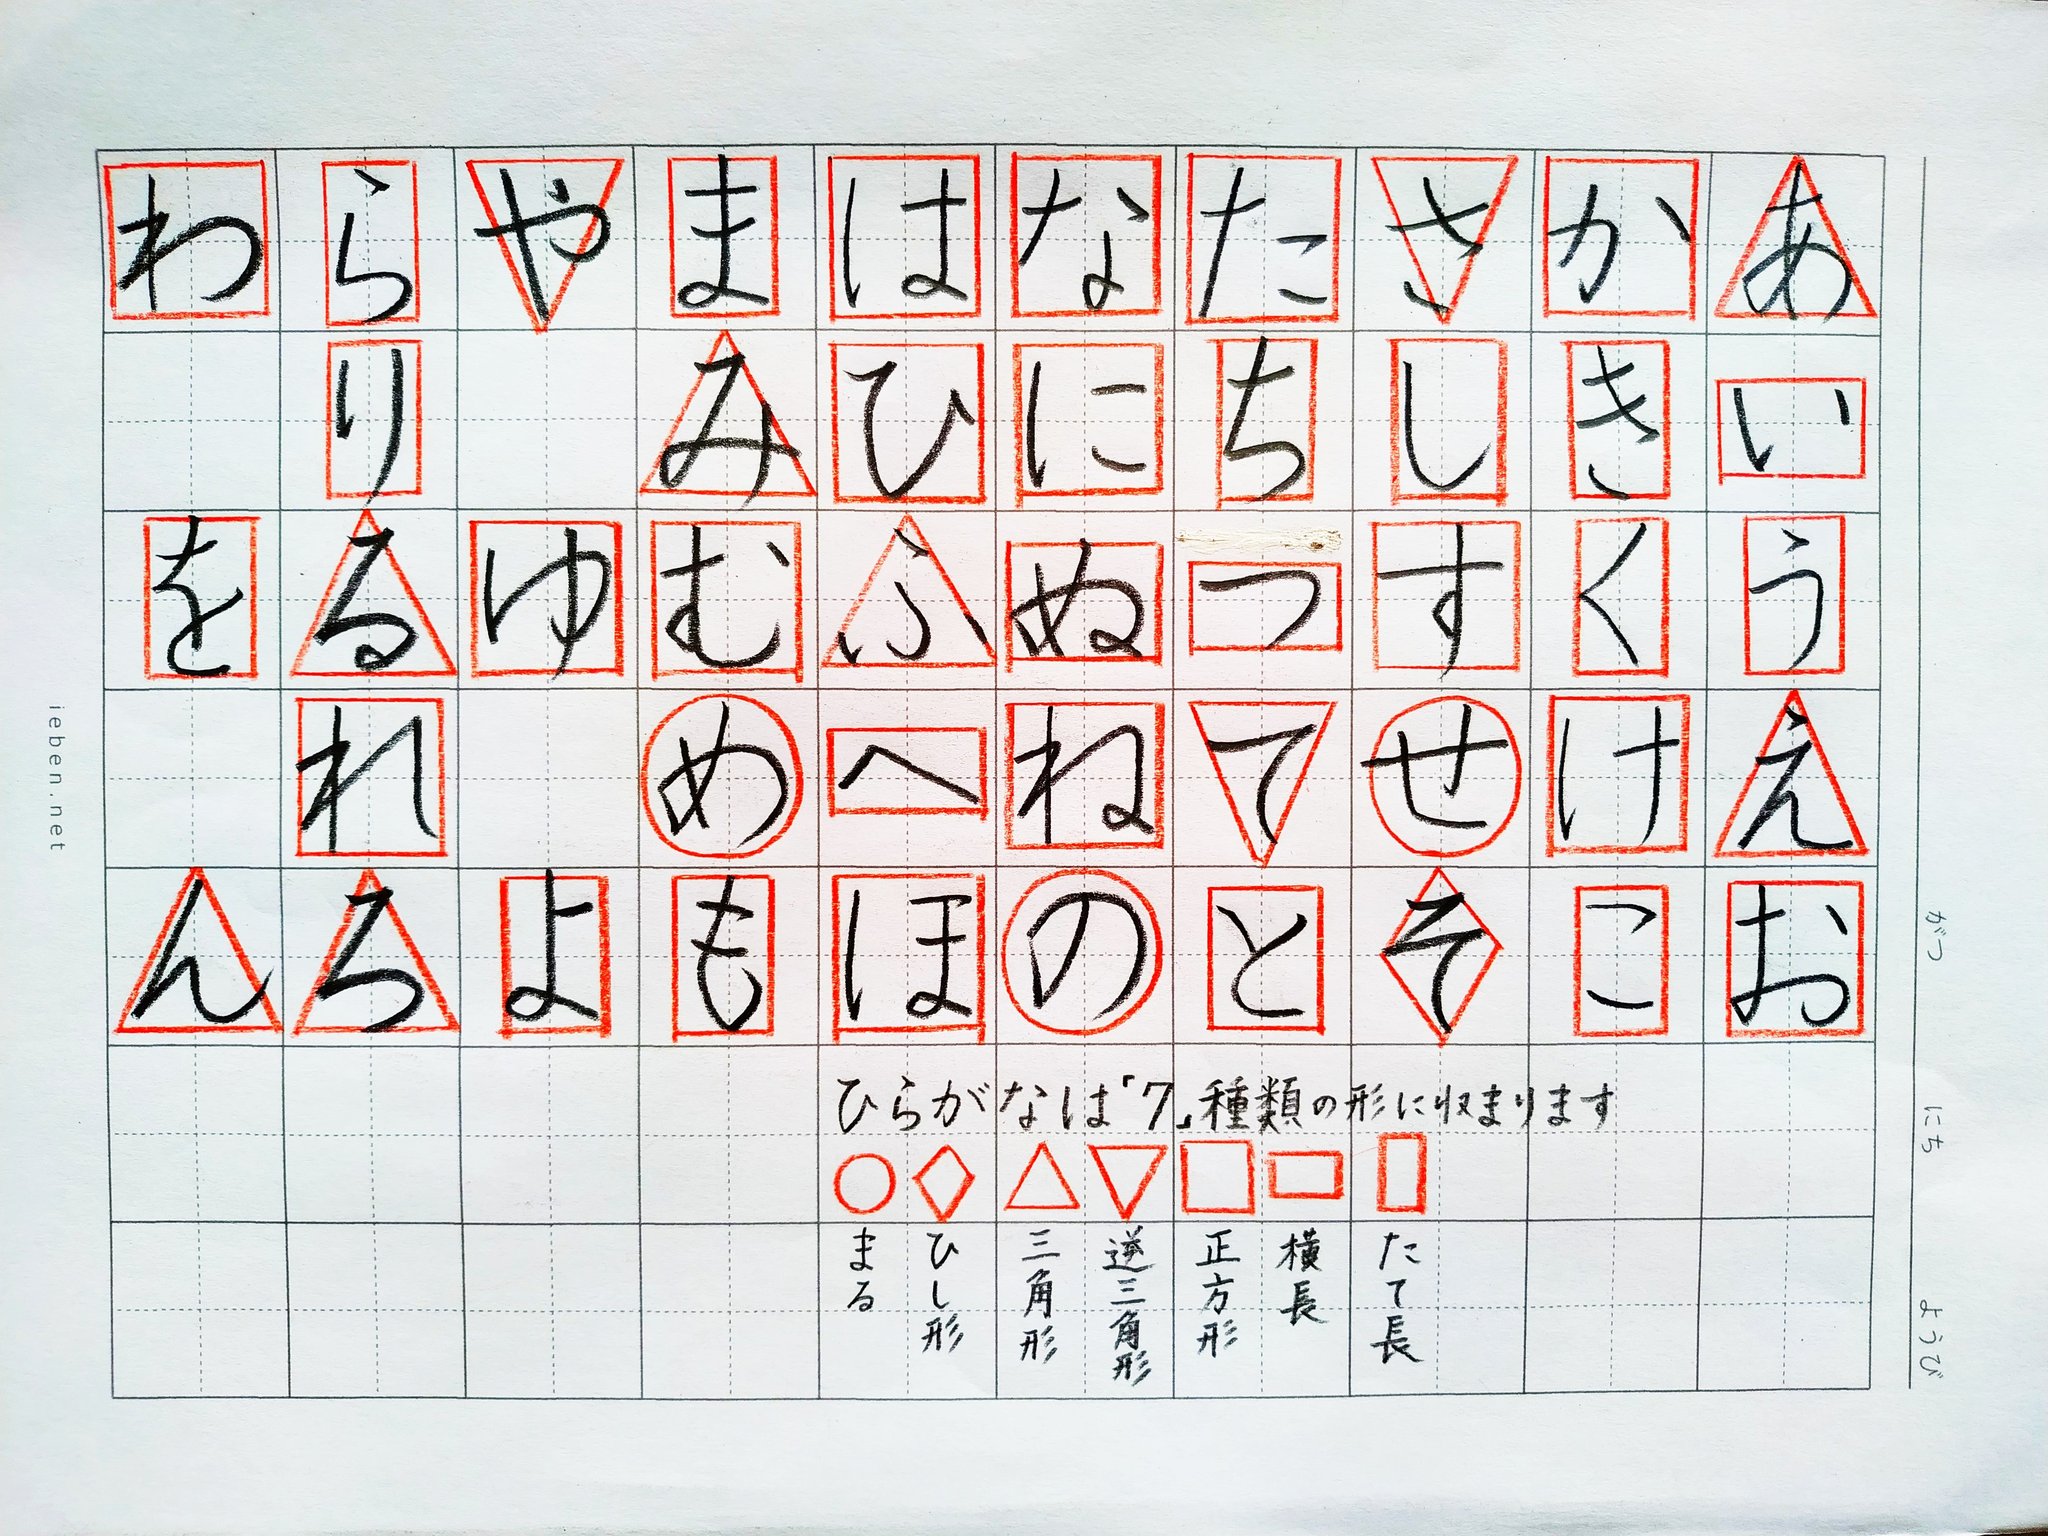 あいうえお
かきくけこ
さしすせそ
たちつてと
なにぬねの
はひふへほ
まみむめも
やゆよ
らりるれろ
わをん
ひらがなは「7」種類の形に収まります
たて長
横長
正方形
逆三角形
三角形
ひし形
まる
がつ にち ようび
ieben.net